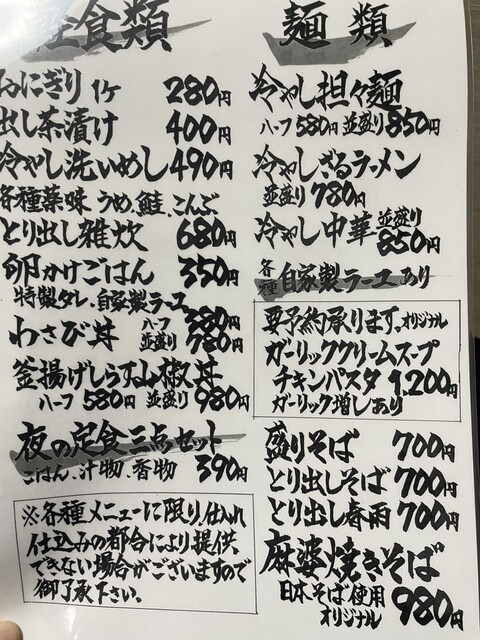 軽食類
おにぎり 1ケ 280円
出し茶漬け 400円
冷やし洗いめし 490円
各種薬味 うめ、鮭、こんぶ
とり出し雑炊 680円
卵かけごはん 350円
特製タレ、自家製ラー油
わさび丼 ハーフ 380円
並盛り 780円
釜揚げしらす山椒丼
ハーフ 580円 並盛り 980円
夜の定食三点セット
ごはん、汁物、香物 390円
※各種メニューに限り、仕入れ
仕込みの都合により提供
できない場合がございますので
御了承下さい。
麺類
冷やし担々麺
ハーフ 580円 並盛り 850円
冷やしざるラーメン
並盛り 780円
冷やし中華 並盛り
850円
各種 自家製ラーユあり
要予約承ります。オリジナル
ガーリッククリームスープ
チキンパスタ 1,200円
ガーリック増しあり
盛りそば 700円
とり出しそば 700円
とり出し春雨 700円
麻婆焼きそば
日本そば使用
オリジナル 980円